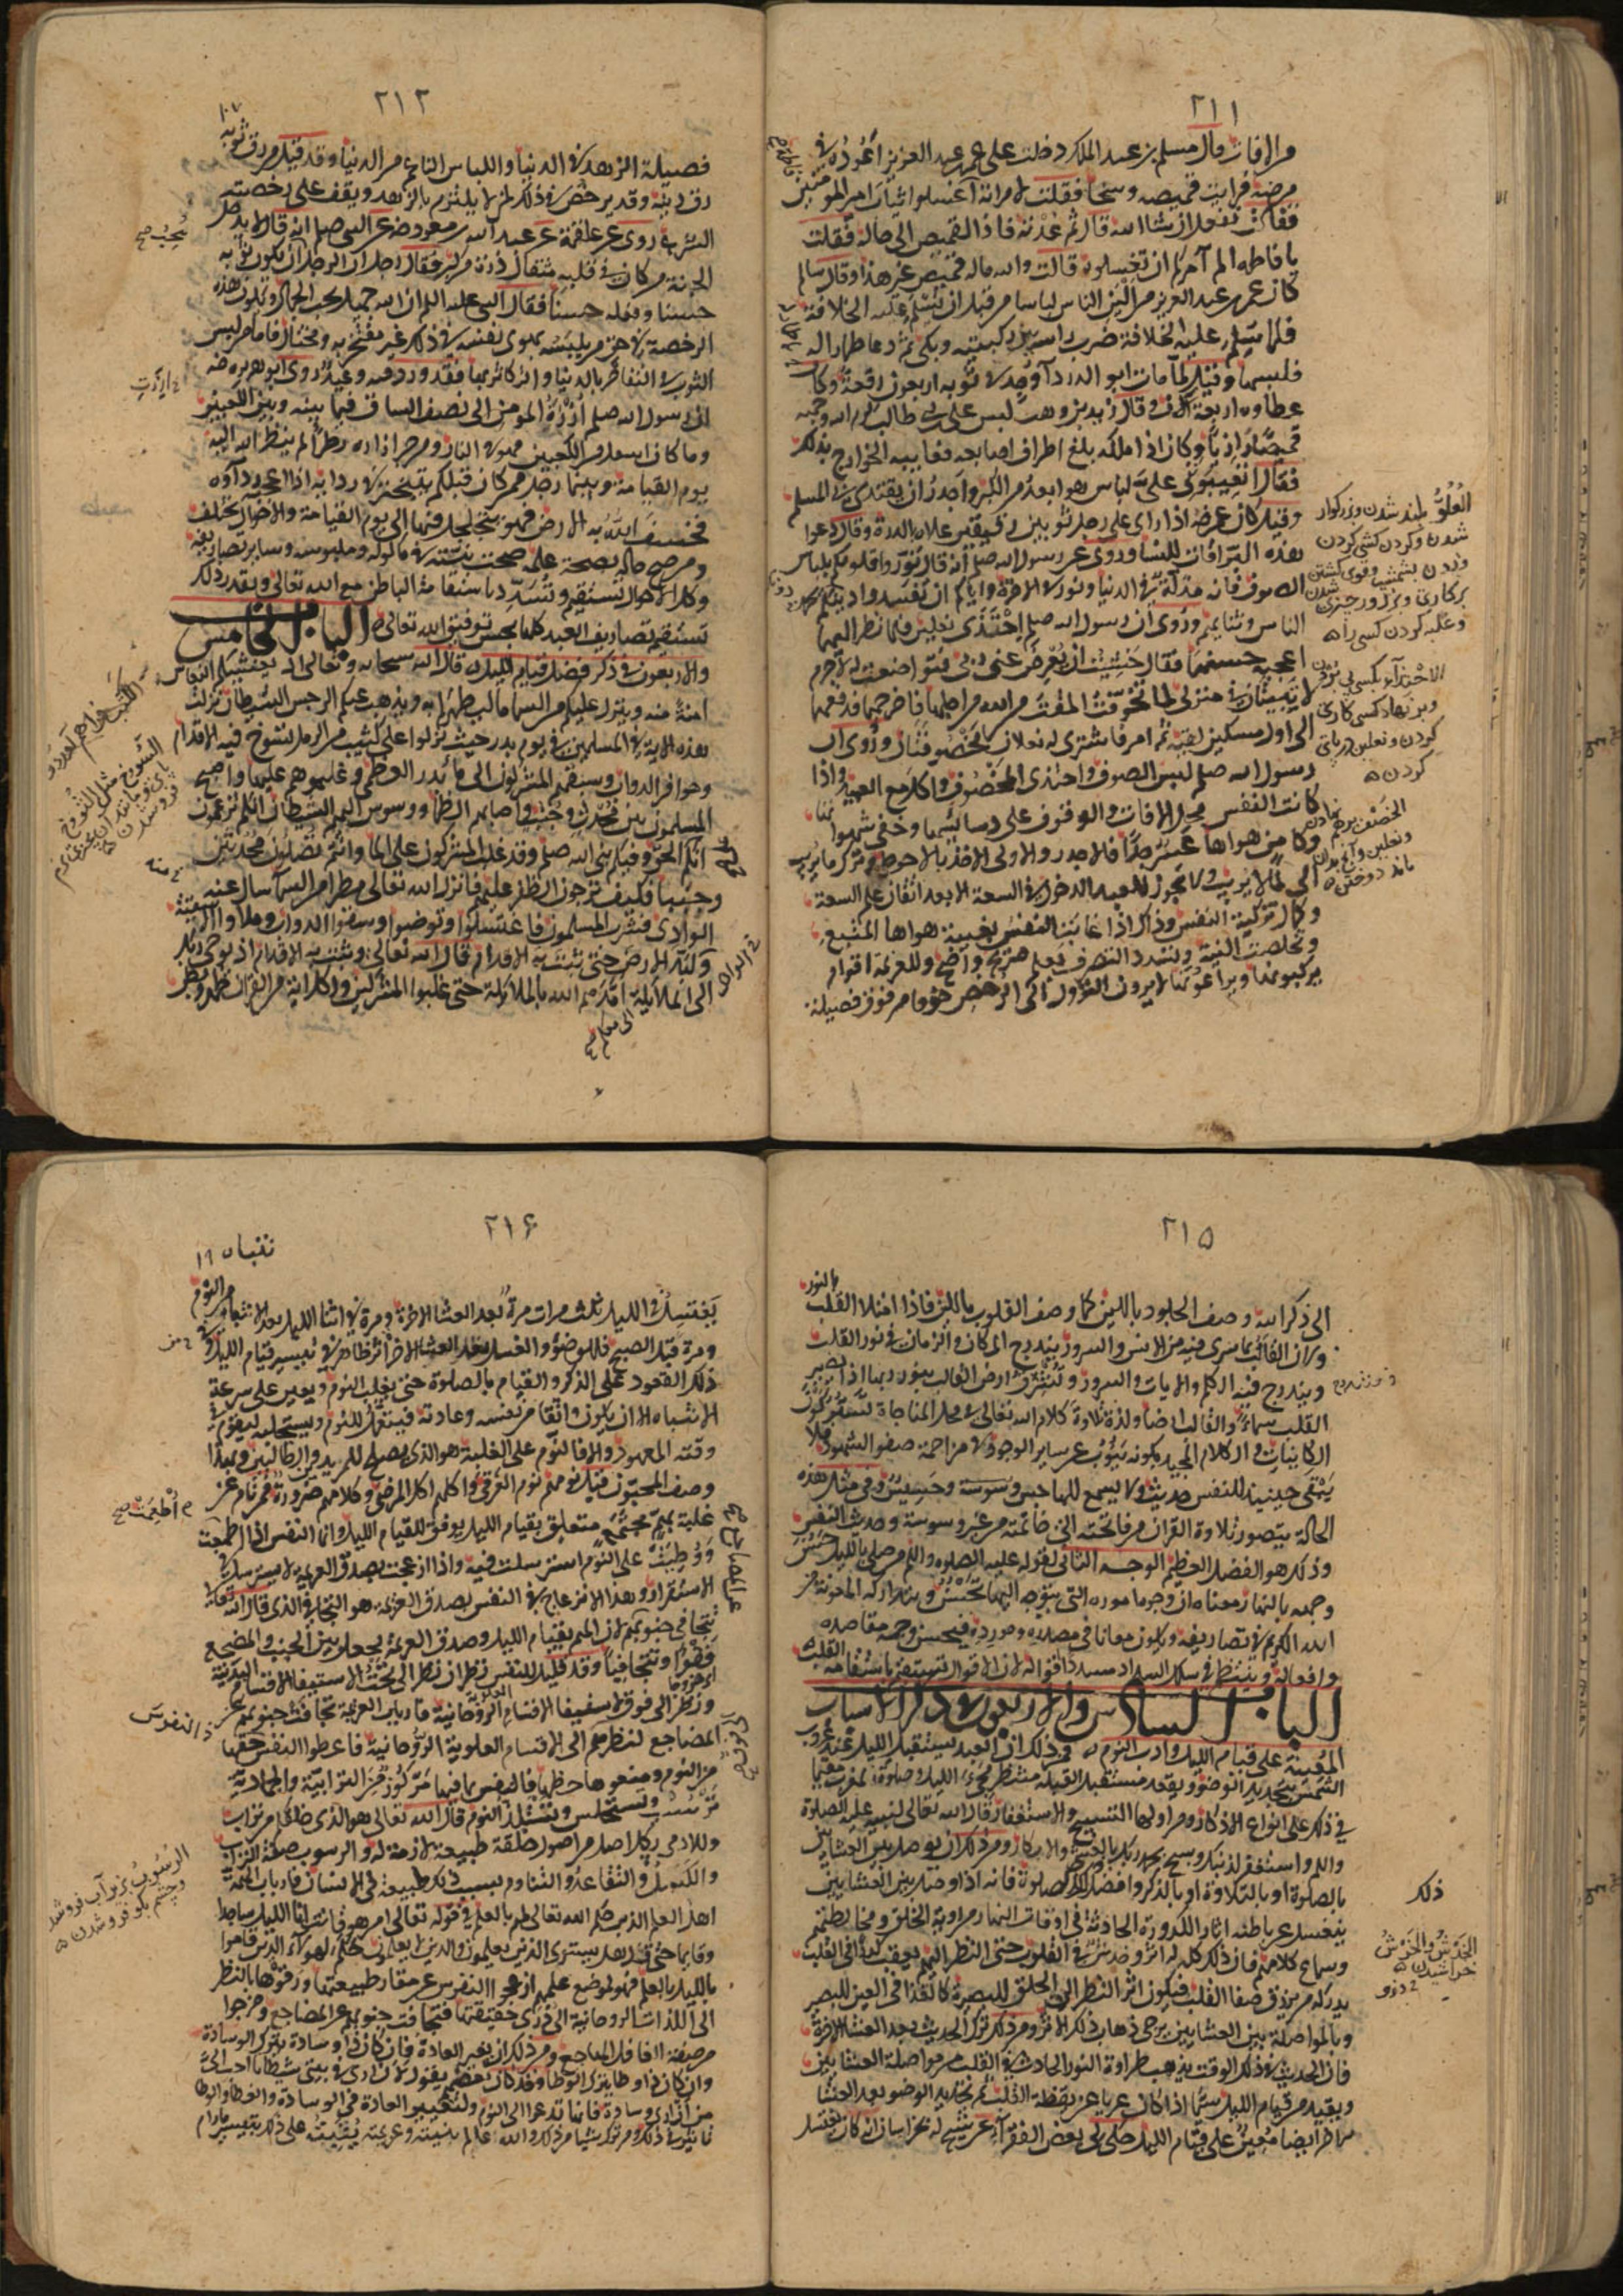 ٢١١
من الافات قال مسلم بن عبد الملك دخلت على عمر بن عبد العزيز اعوده في
مرضه فرايت قميصه وسخا فقلت لامراته اغسلوا ثياب امير المومنين
فقالت نفعل ان شا الله قال ثم عدته فاذا القميص الى حاله فقلت
يا فاطمه الم آمركم ان تغسلوه قالت والله ماله قميص غير هذا وقال سالم
كان عمر بن عبد العزيز من الين الناس لباسا من قبل ان يسلم عليه الخلافة
فلما سلم عليه الخلافة ضرب راسه بين ركبتيه وبكى ثم دعا باطمار له
فلبسها وقيل لما مات ابو الدردآ وجد في ثوبه اربعون رقعة وكان
عطاوه اربعة آلاف وقال زيد بن وهب لبس علي بن ابي طالب كرم الله وجهه
قميصا رازيا وكان اذا مد كمه بلغ اطراف اصابعه فعابه الخوارج بذلك
فقال اتعيبوني على لباس هو ابعد من الكبر واجدر ان يقتدي بي المسلم
وقيل كان عمر رضه اذا راى على رجل ثوبين رقيقين علاه بالدرة وقال دعوا
هذه البراقات للنسا وروي عن رسول الله صلم انه قال نوروا قلوبكم بلباس
الصوف فانه مذلة في الدنيا ونور في الاخرة واياكم ان تفسدوا دينكم بحمد
الناس وثنايهم وروي ان رسول الله صلم احتذى نعلين فلما نظر اليهما
اعجبه حسنهما فقال خشيت ان يعرض عني ربي فتواضعت له لا جرم
لا يبيتان في منزلي لما تخوفت المقت من الله من اجلهما فاخرجهما فدفعهما
الى اول مسكين لقيه ثم امر فاشتري له نعلان مخصوفتان وروي ان
رسول الله صلم لبس الصوف واحتذى المخصوف واكل مع العبيد واذا
كانت النفس محل الافات والوقوف على دسائسها وخفي شهواتها
وكامن هواها عسر جدا فالاجدر والاولى الاخذ بالاحوط وترك ما يريب
الى ما لا يريب ولا يجوز للعبد الدخول في السعة الا بعد اتقان علم السعة
وكمال تزكية النفس وذلك اذا غابت النفس بغيبة هواها المتبع
وتخلصت النية وتسدد التصرف بعلم صريح واضح وللعزيمة اقوام
يركبونها ويراعونها لا يرون النزول الى الرخص خوفا من فوت فضيلة
العلو بلند شدن وبزركوار
شدن وكردن كشي كردن
الاحتذآ
كردن ونعلين درپاى
كردن
٢١٢
فضيلة الزهد في الدنيا واللباس الناعم من الدنيا وقد قيل من رق ثوبه
رق دينه وقد يرخص في ذلك لمن لا يلتزم بالزهد ويقف على رخصة
الشرع روى علقمة عن عبد الله بن مسعود رضه عن النبي صلم انه قال لا يدخل
الجنة من كان في قلبه مثقال ذرة من كبر فقال رجل ان الرجل ان يكون ثوبه
حسنا ونعله حسنا فقال النبي عليه السلم ان الله جميل يحب الجمال وتكون هذه
الرخصة في حق من يلبسه لا بهوى نفسه في ذلك غير مفتخر به ومختال فاما من لبس
الثوب للتفاخر بالدنيا والتكاثر بها فقد ورد فيه وعيد روى ابو هريره رضه
ان رسول الله صلم ازرة المومن الى نصف الساق فيما بينه وبين الكعبين
وما كان اسفل من الكعبين فهو في النار ومن جر ازاره بطرا لم ينظر الله اليه
يوم القيامة وبينما رجل ممن كان قبلكم يتبختر في ردايه اذا اعجبه ردآوه
فخسف الله به الارض فهو يتجلجل فيها الى يوم القيامة والاحوال تختلف
ومن صح حاله بصحة علمه صحت نيته في ماكوله وملبوسه وساير تصاريفه
وكل الاحوال تستقيم وتتسدد باستقامة الباطن مع الله تعالى وبقدر ذلك
تستقيم تصاريف العبد كلها بحسن توفيق الله تعالى الباب الخامس
والاربعون في ذكر فضل قيام الليل قال الله سبحانه وتعالى اذ يغشيكم النعاس
امنة منه وينزل عليكم من السما ما ليطهركم به ويذهب عنكم الرجس الشيطان نزلت
هذه الاية في المسلمين في يوم بدر حيث نزلوا على كثيب من الرمل تسوخ فيه الاقدام
وحوافر الدواب وسبقهم المشركون الى ما بدر العظمى وغلبوهم عليها واصبح
المسلمون بين محدث وجنب واصابهم الظما ووسوس اليهم الشيطان انكم تزعمون
انكم على الحق وفيكم نبي الله صلم وقد غلب المشركون على الما وانتم تصلون محدثين
وجنبا فكيف ترجون الظفر عليهم فانزل الله تعالى مطرا من السمآ سال عنه
الوادي فشرب المسلمون منه واغتسلوا وتوضوا وسقوا الدواب وملاوا الاسقية
ولبد الارض حتى ثبت به الاقدام قال الله تعالى ويثبت به الاقدام اذ يوحي ربك
الى الملايكة امدهم الله بالملايكة حتى غلبوا المشركين ولكل اية من القران ظهر وبطن
اني معكم
يحب صح
٢١٥
الى ذكر الله وصف الجلود باللين كما وصف القلوب باللين فاذا امتلا القلب بالنور
ولان القالب بما يسري فيه من الانس والسرور يندرج الزمان والمكان في نور القلب
ويندرج فيه الكلم والايات والسور وتشرق ارض القالب بنور ربها اذا يصير
القلب سماء والقالب ارضا ولذة تلاوة كلام الله تعالى في محل المناجاة تستر كون
الكاينات والكلام المجيد بكونه ينوب عن ساير الوجود في مزاحمة صفو الشهود فلا
يبقى حينئذ للنفس حديث ولا يسمع للهاجس وسوسة وحسيس وفي مثل هذه
الحالة يتصور تلاوة القران من فاتحته الى خاتمته من غير وسوسة وحديث النفس
وذلك هو الفضل العظيم الوجه الثاني لقوله عليه الصلوه والسلم من صلى بالليل حسن
وجهه بالنهار معناه ان وجوه اموره التي يتوجه اليها تحسن ويتداركه المعونة من
الله الكريم في تصاريفه ويكون معانا في مصدره ومورده فيحسن وجه مقاصده
وافعاله وينتظم في سلك السداد مسددا اقواله لان الاقوال تستقيم باستقامة القلب
الباب السادس والاربعون في ذكر الاسباب
المعينة على قيام الليل وادب النوم فمن ذلك ان العبد يستقبل الليل عند غروب
الشمس بتجديد الوضوء ويقعد مستقبل القبلة منتظرا مجيء الليل وصلوة المغرب مقيما
في ذلك على انواع الاذكار ومن اولها التسبيح والاستغفار قال الله تعالى لنبيه عليه الصلوة
والسلم واستغفر لذنبك وسبح بحمد ربك بالعشي والابكار ومن ذلك ان يواصل بين العشايين
بالصلوة او بالتلاوة او بالذكر وافضل ذلك الصلوة فانه اذا واصل بين العشايين
ينغسل عن باطنه اثار الكدورة الحادثة في اوقات النهار من رؤية الخلق ومخالطتهم
وسماع كلامهم فان ذلك كله له اثر وخدش في القلوب حتى النظر اليهم يعقب كدرا في القلب
يدركه من يرزق صفا القلب فيكون اثر النظر الى الخلق للبصيرة كالقذا في العين للبصر
وبالمواصلة بين العشايين يرجى ذهاب ذلك الاثر ومن ذلك ترك الحديث بعد العشا الاخرة
فان الحديث في ذلك الوقت يذهب طراوة النور الحادث في القلب من مواصلة العشايين
ويقيد من قيام الليل سيما اذا كان عريا عن يقظة القلب ثم تجديد الوضوء بعد العشا
الاخر ايضا معين على قيام الليل حكى لي بعض الفقرآ عن شيخ له بخراسان انه كان يغتسل
ذلك
الخدش والخرش
خراشيدن
٢١۶
يغتسل في الليل ثلث مرات مرة بعد العشا الاخرة ومرة في اثنا الليل بعد الانتباه من النوم
ومرة قبل الصبح فللوضوء والغسل بعد العشا الاخر اثر ظاهر في تيسير قيام الليل ومن
ذلك التعود على الذكر والقيام بالصلوة حتى يغلب النوم ويعين على سرعة
الانتباه الا ان يكون واثقا من نفسه وعادته فيتعمل للنوم ويستجلبه ليقوم في
وقته المعهود والا فالنوم على الغلبة هو الذي يصلح للمريدين والطالبين وبهذا
وصف المحبون قيل نومهم نوم الغرقى واكلهم اكل المرضى وكلامهم ضرورة فمن نام عن
غلبة بهم مجتمع متعلق بقيام الليل يوفق لقيام الليل وانما النفس اذا اطمعت
ووطنت على النوم استرسلت فيه واذا ازعجت بصدق العزيمة لا تسترسل في
الاستقرار وهذا الانزعاج في النفس بصدق العزيمة هو التجافي الذي قال الله تعالى
تتجافى جنوبهم لان الهم بقيام الليل وصدق العزيمة يجعل بين الجنب والمضجع
نبوا وتجافيا وقد قيل للنفس نظران نظر الى تحت لاستيفا الاقسام البدنية
ونظر الى فوق لاستيفا الاقسام الروحانية فارباب العزيمة تجافت جنوبهم عن
المضاجع لنظرهم الى الاقسام العلوية الروحانية فاعطوا النفس حقها
من النوم ومنعوها حظها فالنفس بما فيها مركوز من الترابية والجمادية
ترسب وتستجلس وتستلذ النوم قال الله تعالى هو الذي خلقكم من تراب
وللادمي بكل اصل من اصول خلقه طبيعة لازمة له والرسوب صفة التراب
والكسل والتقاعد والتناوم بسبب ذلك طبيعة في الانسان فارباب الهمة
اهل العلم الذين حكم الله تعالى لهم بالعلم في قوله تعالى امن هو قانت انا الليل ساجدا
وقايما حتى قال قل هل يستوي الذين يعلمون والذين لا يعلمون حكم لهولآء الذين قاموا
بالليل بالعلم فهم لموضع علمهم ازعجوا النفوس عن مقار طبيعتها ورقوها بالنظر
الى اللذات الروحانية الى ذرى حقيقتها فتجافت جنوبهم عن المضاجع وخرجوا
من صفة الغافل الهاجع ومن ذلك ان يغير العادة فان كان ذا وسادة يترك الوسادة
وان كان ذا وطا يترك الوطا وقد كان بعضهم يقول لان ارى في بيتي شيطانا احب الي
من ان ارى وسادة فانها تدعوا الى النوم ولتغيير العادة في الوسادة والغطا والوطا
تاثير في ذلك ومن ترك شيا من ذلك والله عالم بنيته وعزيمته يثيبه على ذلك بتيسير ما رام
الرسوب بزير آب فروشدن
وچشم بكو فروشدن